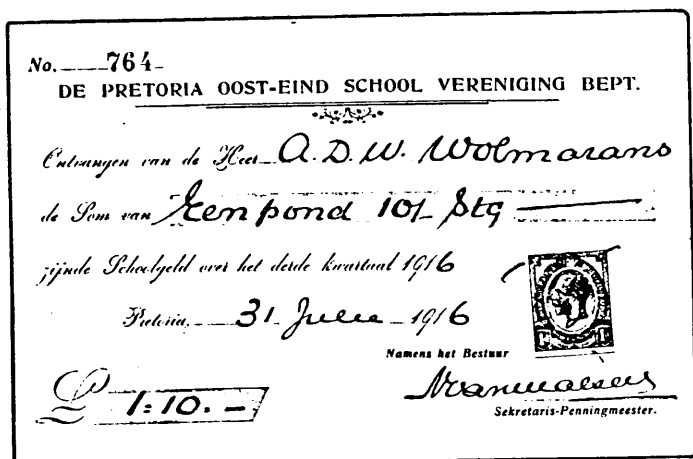 No. 764
DE PRETORIA OOST-EIND SCHOOL VERENIGING BEPT.
Ontvangen van de Heer A. D. W. Wolmarans
de Som van Een pond 10/- Stg
zijnde Schoolgeld over het derde kwartaal 1916
Pretoria, 31 Julie 1916
Namens het Bestuur
£ 1:10. -
Sekretaris-Penningmeester.